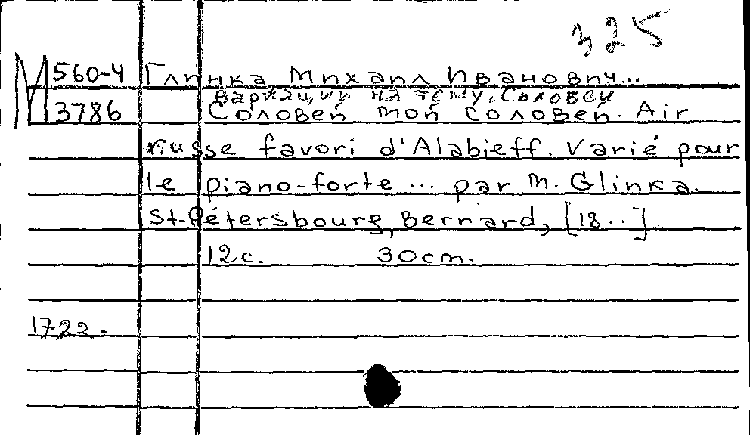 325
М 560-4 Глинка, Михаил Иванович..
Вариации на тему "Соловей
3786 Соловей мой соловей. Air
russe favori d'Alabieff. Varié pour
le piano-forte ... par M. Glinka.
St-Pétersbourg, Bernard, [18..]
12с. 30cm.
1722.